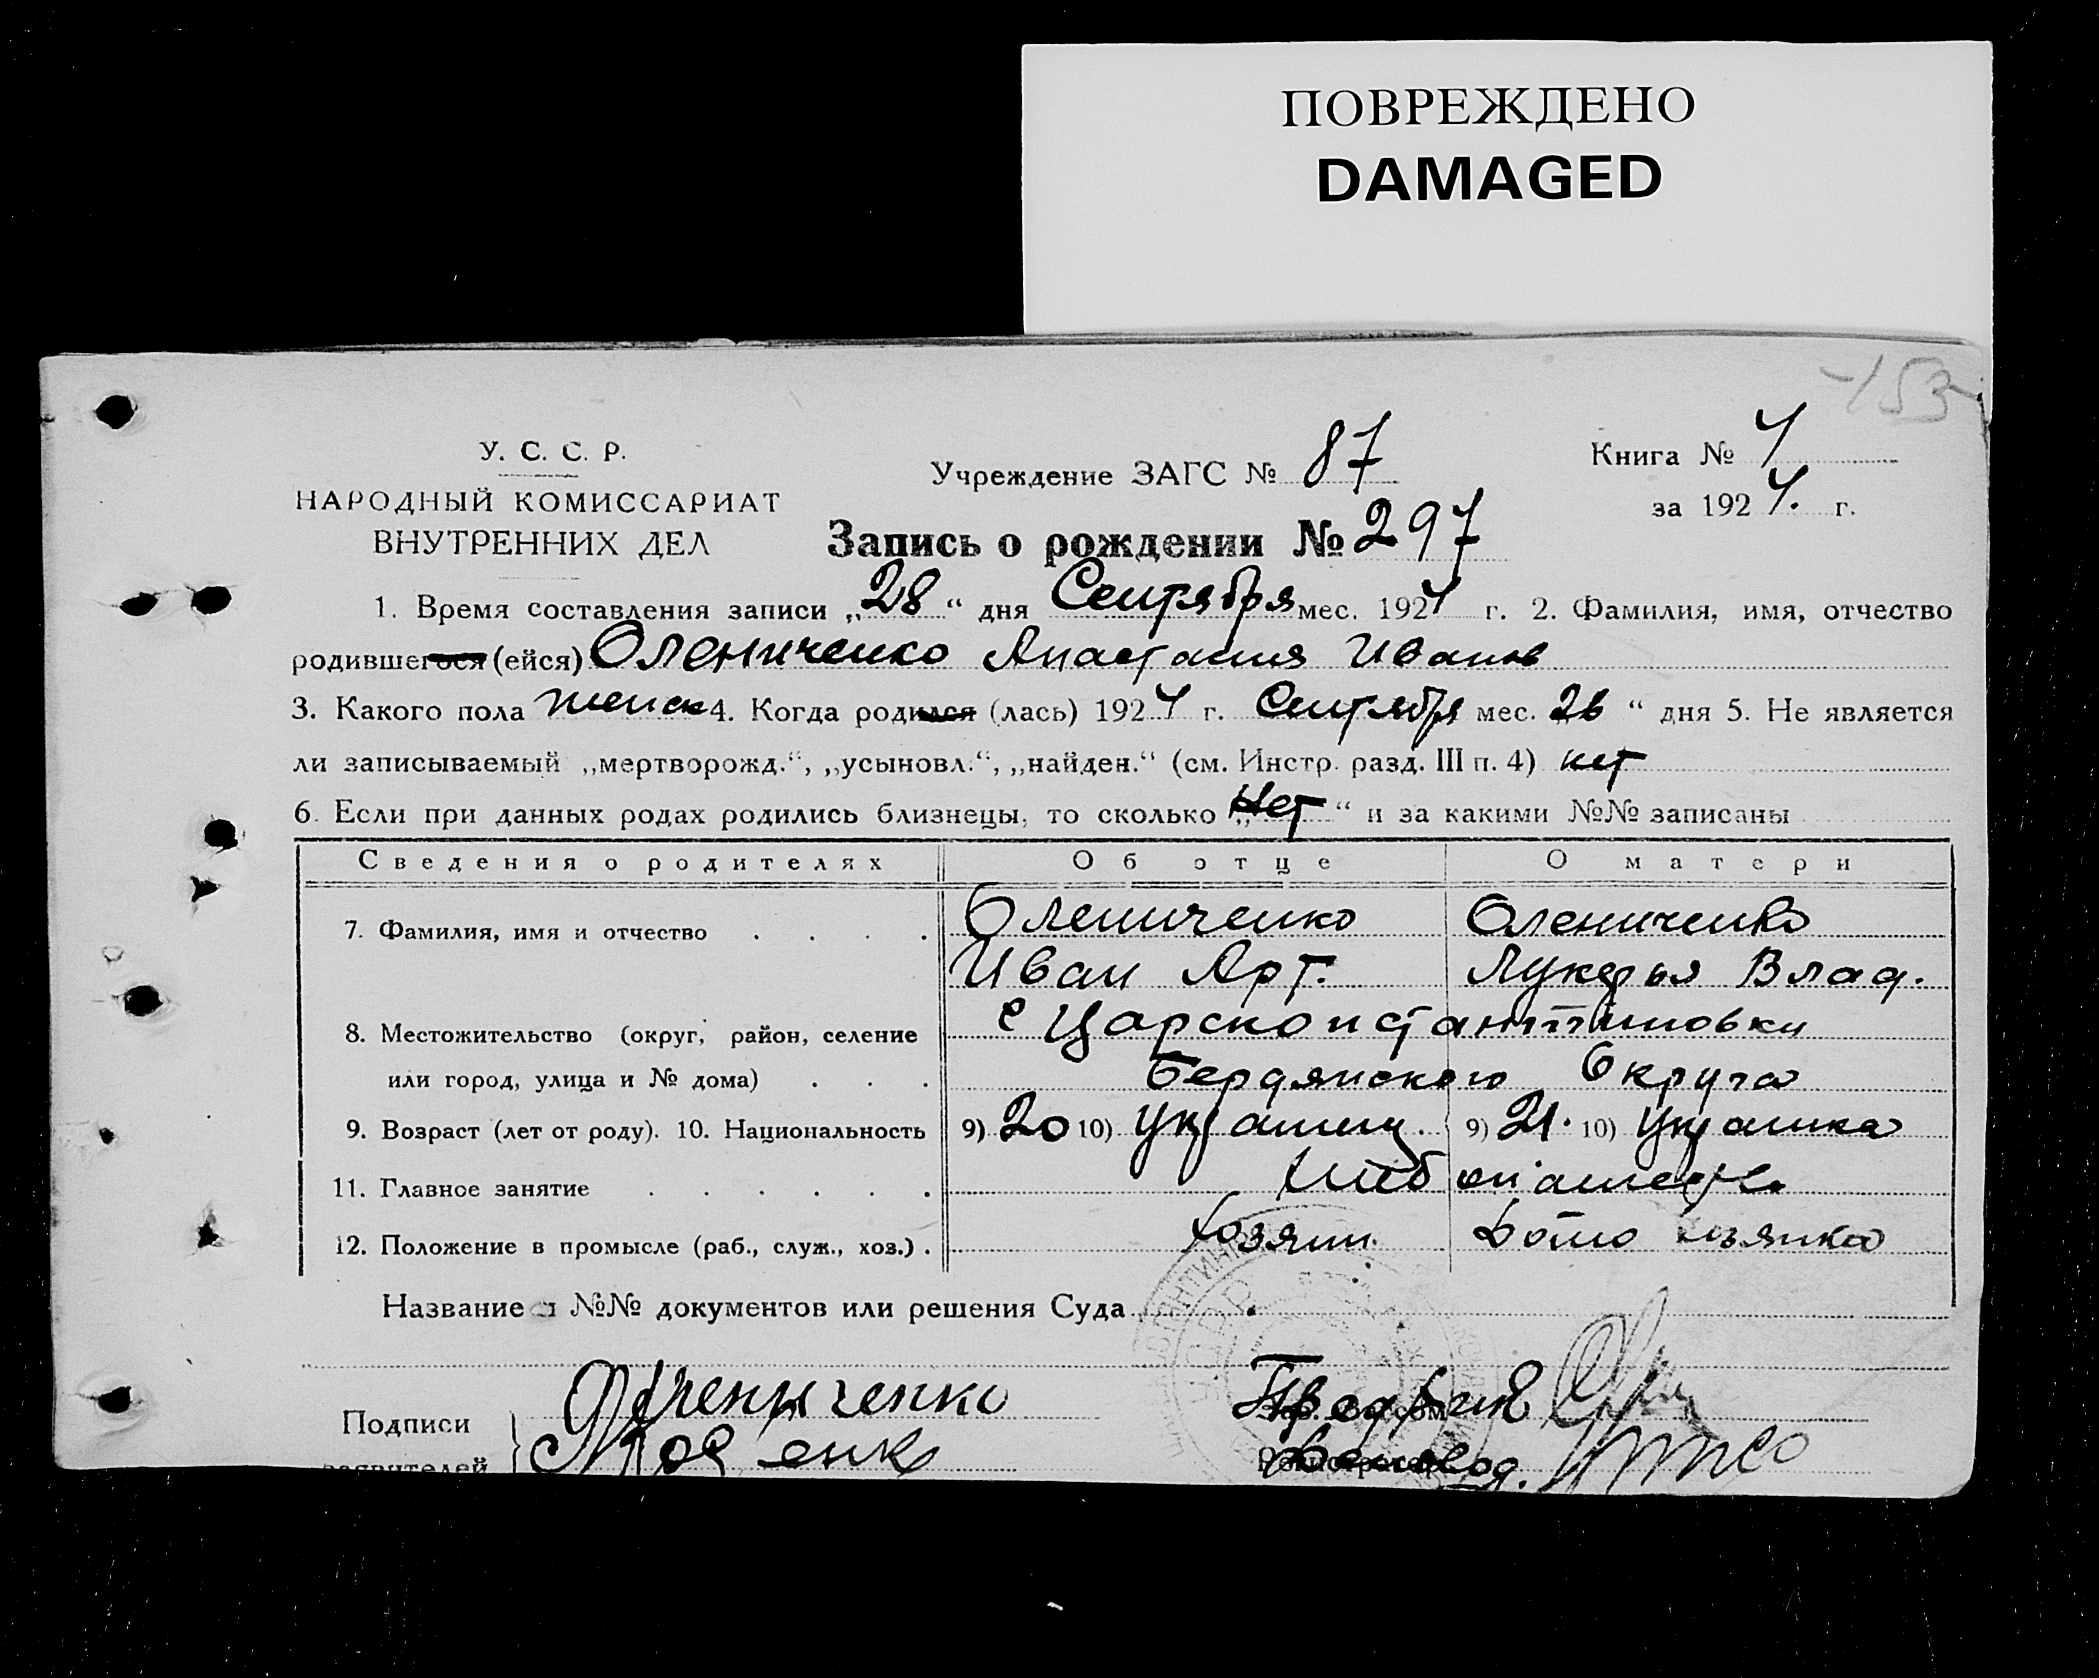 ПОВРЕЖДЕНО
DAMAGED
153
У. С. С. Р.
НАРОДНЫЙ КОМИССАРИАТ
ВНУТРЕННИХ ДЕЛ
Учреждение ЗАГС № 87
Книга № 4
за 1924. г.
Запись о рождении № 297
1. Время составления записи „28“ дня Сентября мес. 1924 г. 2. Фамилия, имя, отчество
родившегося (ейся) Олениченко Анастасия Иванов
3. Какого пола женск 4. Когда родился (лась) 1924 г. Сентября мес. „26“ дня 5. Не является
ли записываемый „мертворожд.“, „усыновл.“, „найден.“ (см. Инстр. разд. III п. 4) нет
6. Если при данных родах родились близнецы, то сколько „Нет“ и за какими №№ записаны
Сведения о родителях Об отце О матери
7. Фамилия, имя и отчество Олениченко Олениченко
Иван Арт. Лукерья Влад.
8. Местожительство (округ, район, селение с Царсконстантиновки
или город, улица и № дома) Бердянского Округа
9. Возраст (лет от роду). 10. Национальность 9) 20 10) Украинец. 9) 21. 10) Украинка
11. Главное занятие
12. Положение в промысле (раб., служ., хоз.) Хозяин. Домохозяйка
Название и №№ документов или решения Суда
Подписи Олениченко
заявителей